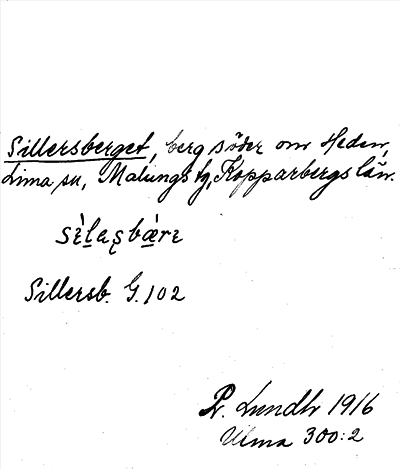 Sillersberget, berg söder om Heden,
Lima sn, Malungs tg, Kopparbergs län.
sɛ̀lasbærɛ
Sillersb. G. 102
Pr. Lundh 1916
Ulma 300:2